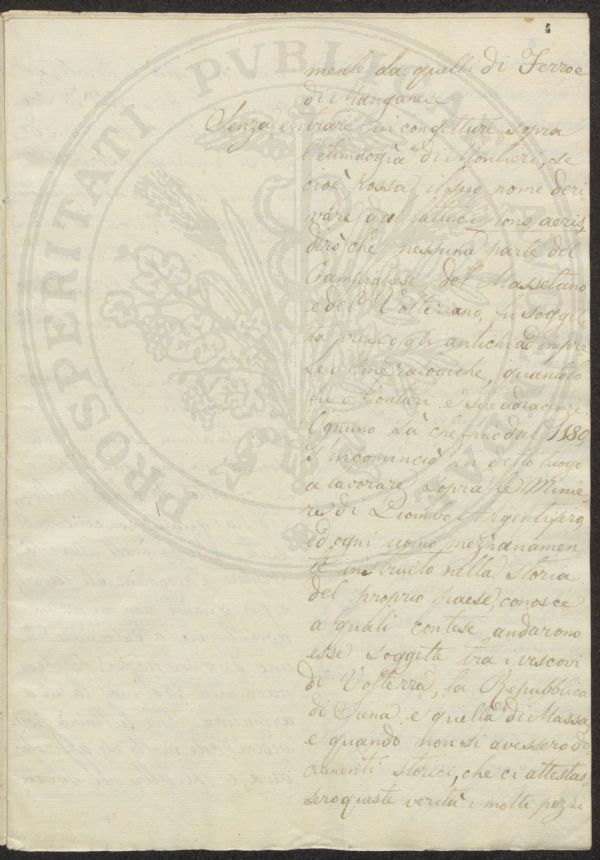 4
mente da quelle di Ferro e
di Manganese
Senza entrare in congetture sopra
l'etimologia di Montieri, se
cioè possa il suo nome deri
vare dal latino mons aeris
dirò che nessuna parte del
Campigliese, del Massetano
e del Volterrano, fu sogget
ta presso gli antichi ad impre
se mineralogiche, quanto lo
fu Montieri e sue adiacenze.
Ognuno sà che fino dal 1180
s'incominciò in detto luogo
a lavorare sopra le Minie
re di Piombo Argentifero,
ed ogni uomo mezzanamen
te instruito nella storia
del proprio paese, conosce
a quali contese andarono
esse soggette tra i vescovi
di Volterra, la Repubblica
di Siena e quella di Massa,
e quando non si avessero do
cumenti storici, che ci attestas
sero queste verità i molti pozzi
PROSPERITATI PVBLICAE